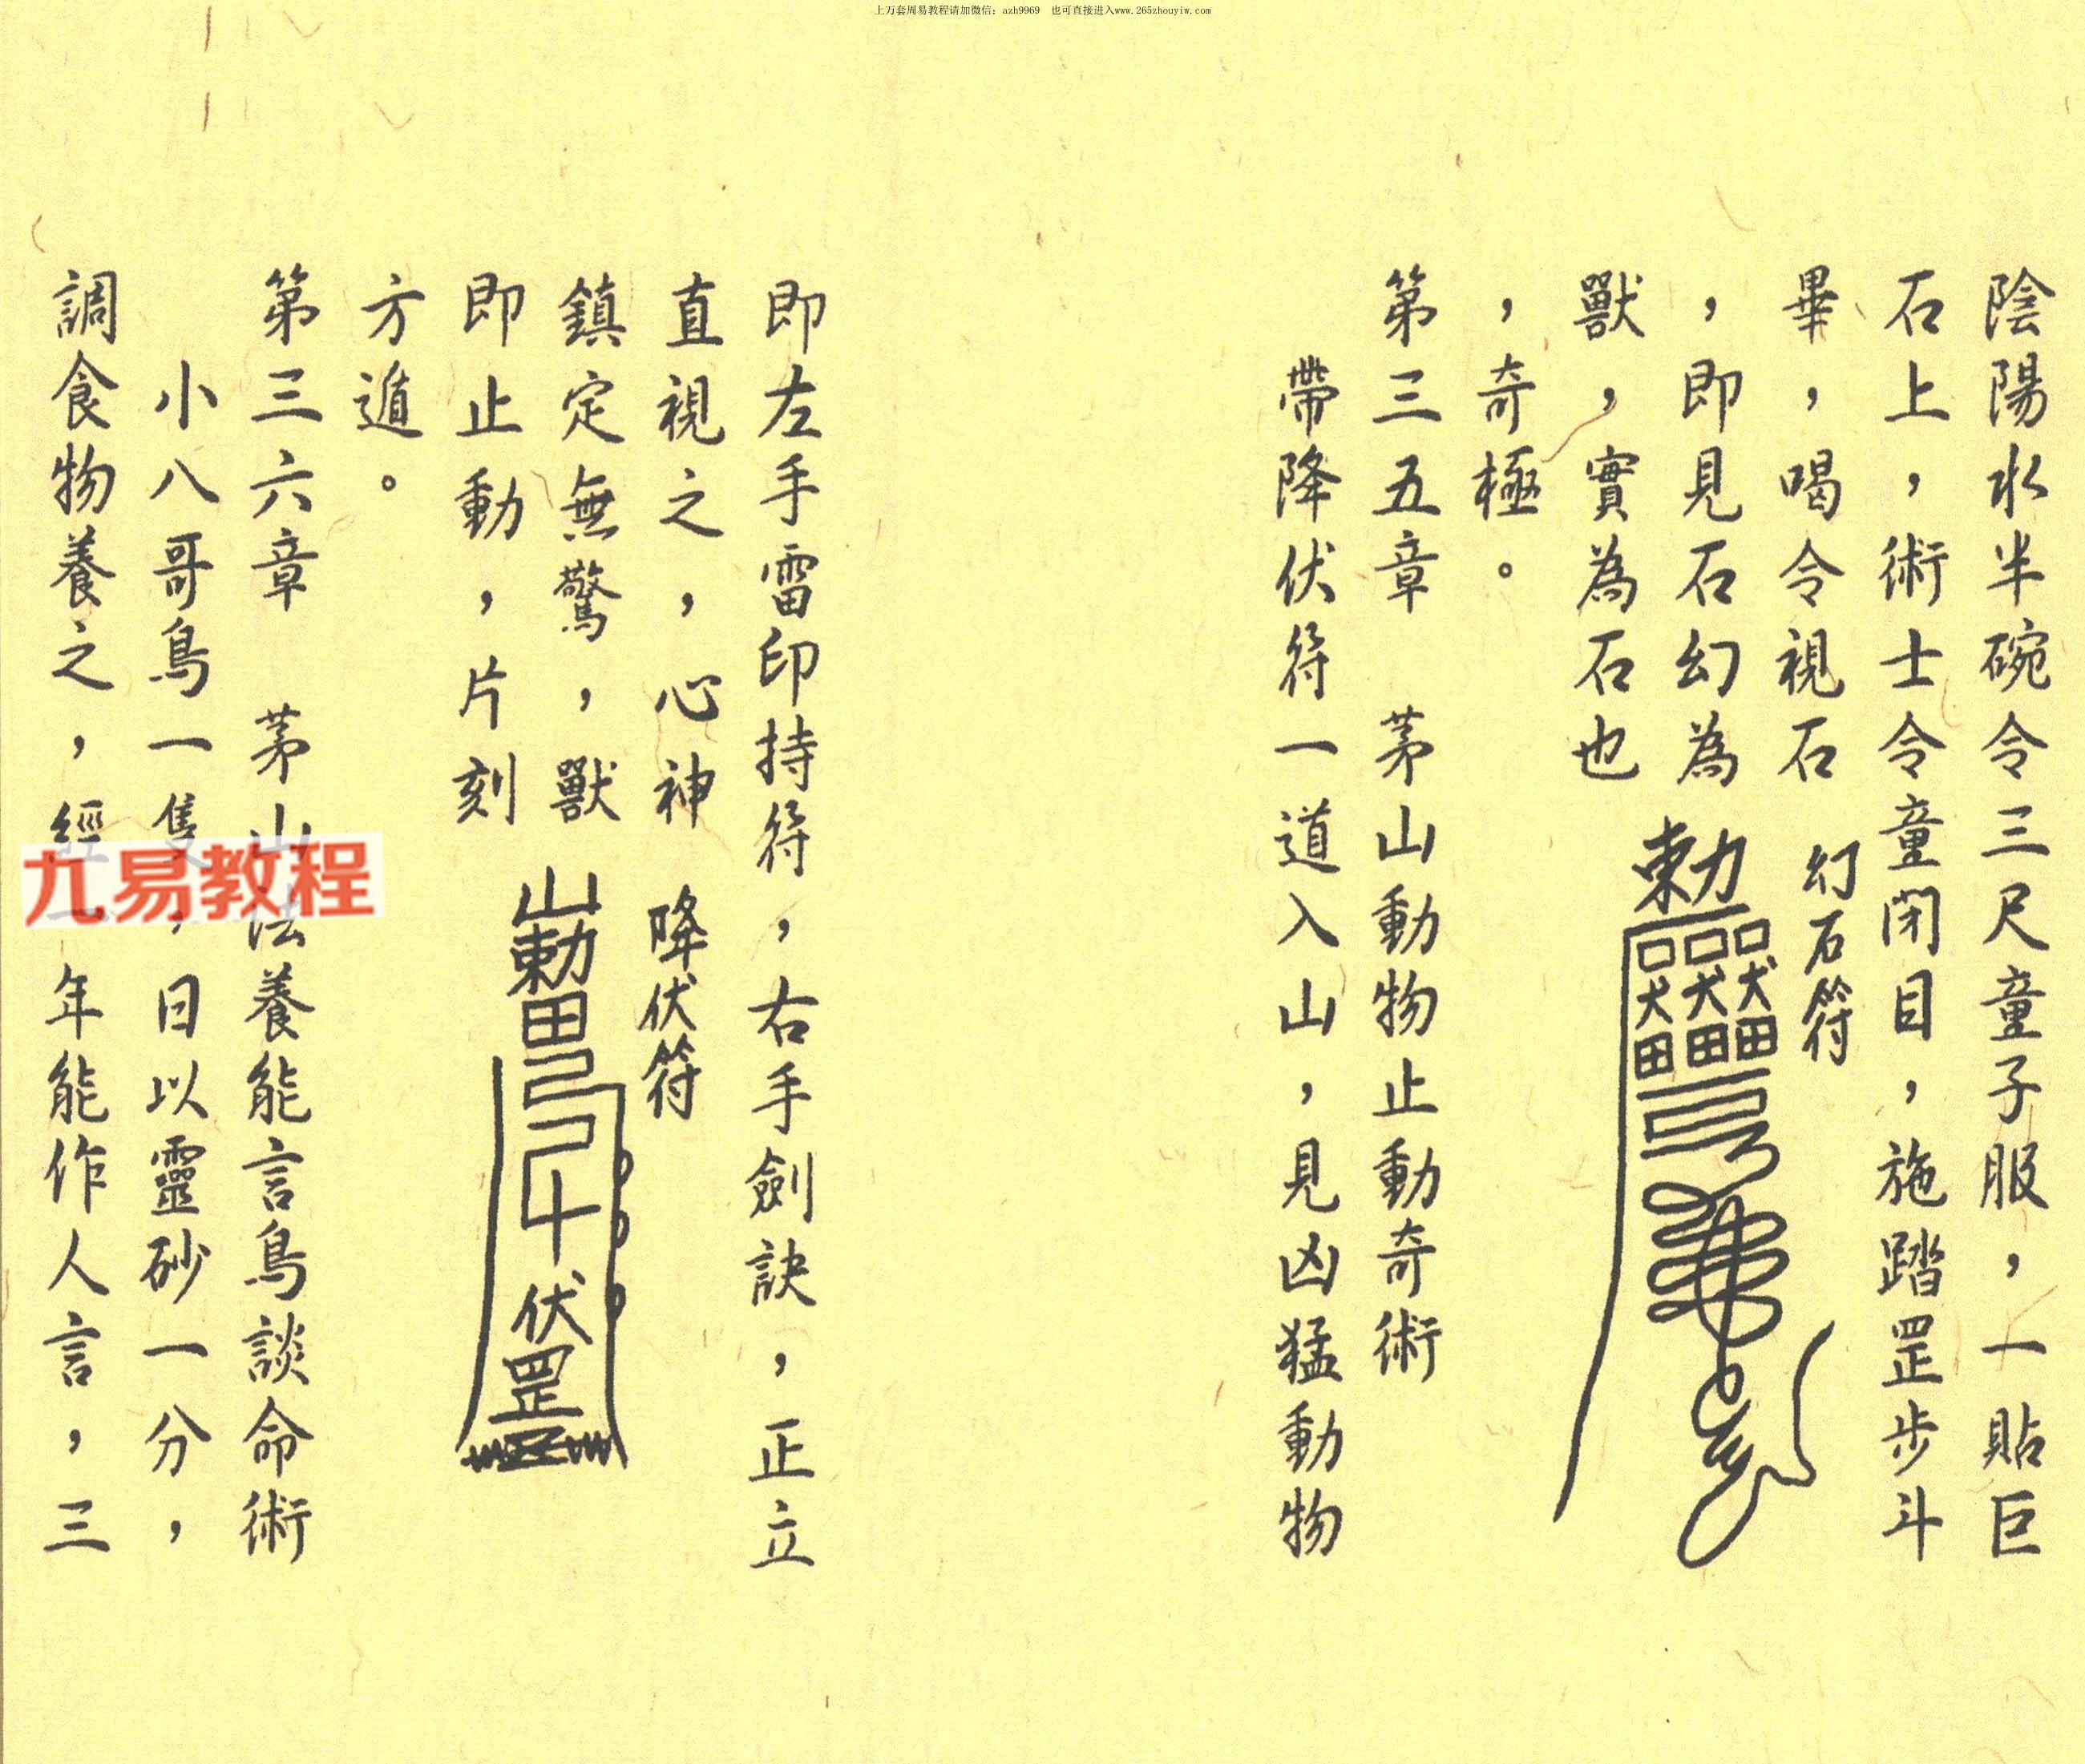 上万套周易教程请加微信：azh9969　也可直接进入www.265zhouyiw.com
陰陽水半碗令三尺童子服，一貼巨
石上，術士令童閉目，施踏罡步斗
畢，喝令視石
，即見石幻為
獸，實為石也
，奇極。
幻石符
勅
第三五章　茅山動物止動奇術
帶降伏符一道入山，見凶猛動物
即左手雷印持符，右手劍訣，正立
直視之，心神
鎮定無驚，獸
即止動，片刻
方遁。
降伏符
山勅田
伏罡
第三六章　茅山法養能言鳥談命術
小八哥鳥一隻，日以靈砂一分，
調食物養之，經一年能作人言，三
九易教程